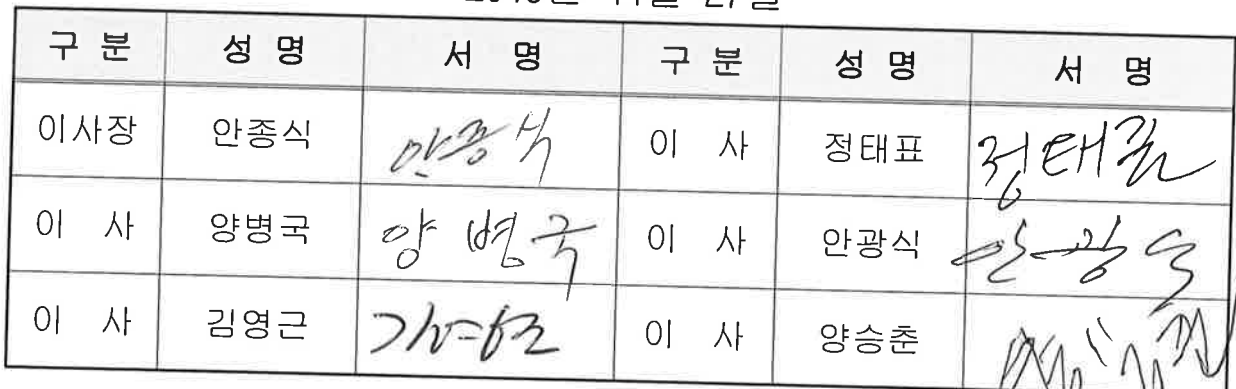 구 분 성 명 서 명 구 분 성 명 서 명
이사장 안종식 안종식 이 사 정태표 정태표
이 사 양병국 양병국 이 사 안광식 안광식
이 사 김영근 김영근 이 사 양승춘